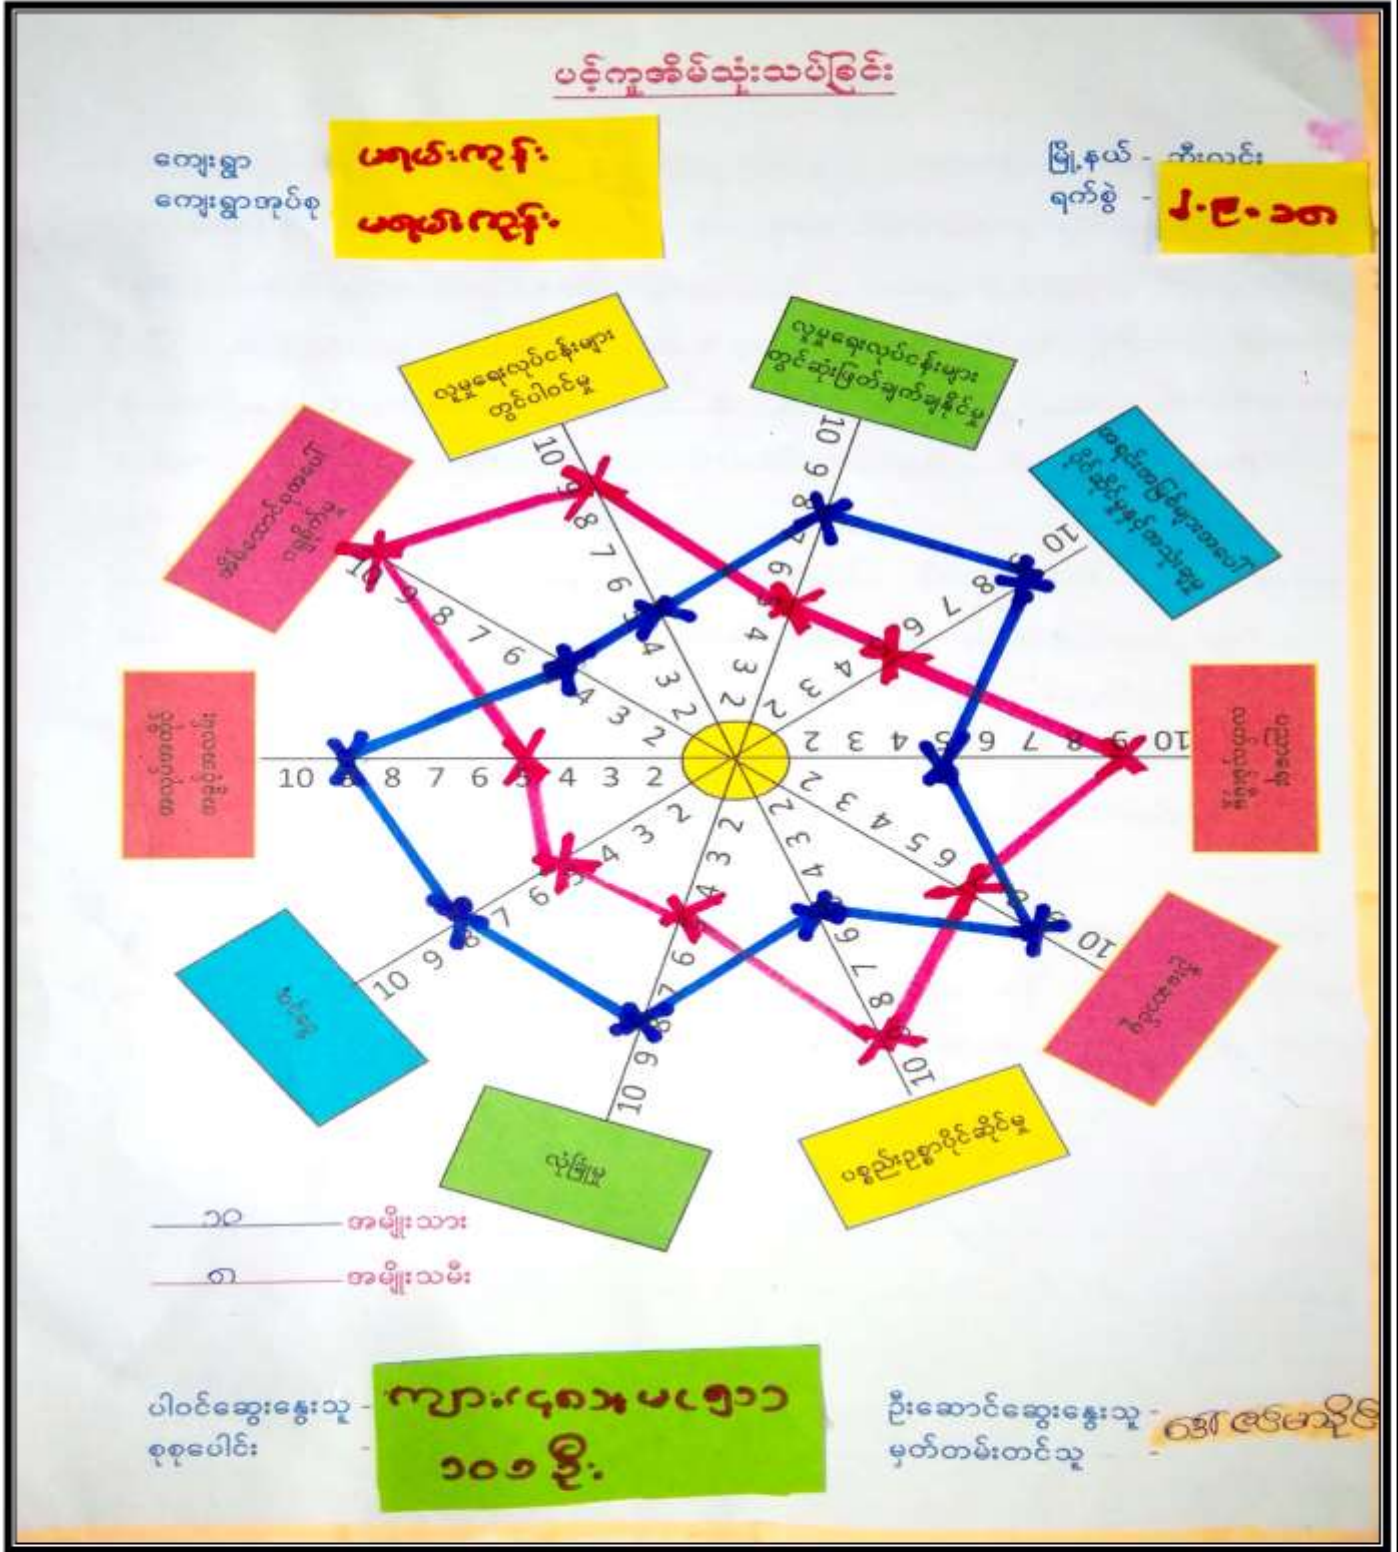 ပင့်ကူအိမ်သုံးသပ်ခြင်း
ကျေးရွာ မရမ်းကုန်း
ကျေးရွာအုပ်စု မရမ်းကုန်း
မြို့နယ် - ဘီးလင်း
ရက်စွဲ -
လူမှုရေးလုပ်ငန်းများ
တွင်ပါဝင်မှု
လူမှုရေးလုပ်ငန်းများ
တွင်ဆုံးဖြတ်ချက်ချနိုင်မှု
အရင်းအမြစ်များအပေါ်
ပိုင်ဆိုင်မှုနှင့်အသုံးချမှု
အိမ်ထောင်စုအပေါ်
ဂရုစိုက်မှု
အလုပ်အကိုင်
ဝင်ငွေ
လုံခြုံမှု
ပစ္စည်းဥစ္စာပိုင်ဆိုင်မှု
10 9 8 7 6 5 4 3 2
10 9 8 7 6 5 4 3 2
10 9 8 7 6 4 3 2
10 9 8 7 6 5 4 3 2
10 9 8 6 5 4 3 2
10 9 8 7 6 4 3 2
10 9 8 7 6 4 3 2
10 9 8 7 6 5 4 3 2
10 9 8 7 6 5 4 3 2
10 9 8 7 6 4 3 2
၁၀ အမျိုးသား
၈ အမျိုးသမီး
ပါဝင်ဆွေးနွေးသူ - ကျား(၄၈) မ(၅၁)
စုစုပေါင်း - ဦး
ဦးဆောင်ဆွေးနွေးသူ - ဒေါ်
မှတ်တမ်းတင်သူ -